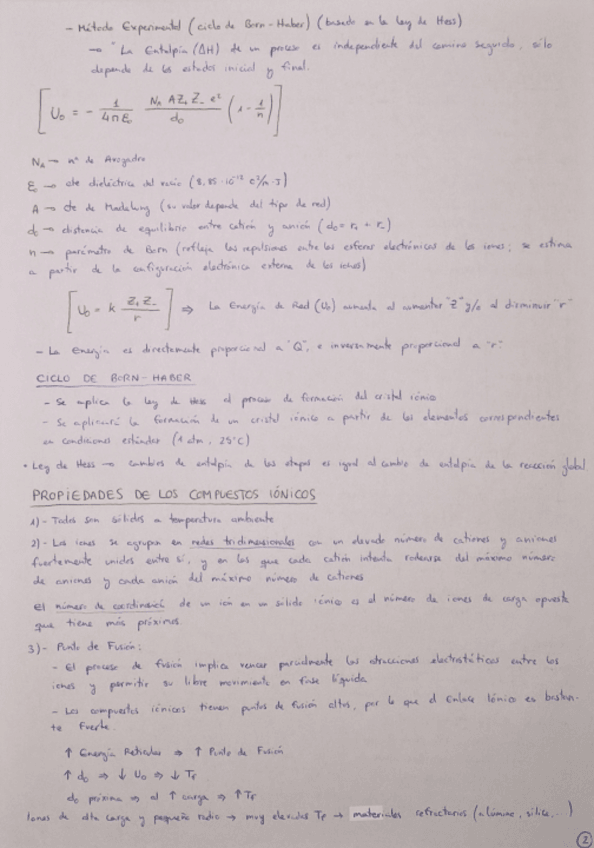 - Método Experimental (ciclo de Born-Haber) (basado en la Ley de Hess)
→ "La Entalpía (ΔH) de un proceso es independiente del camino seguido, sólo
depende de los estados inicial y final.
[U₀ = - 1/4πε₀ N_A A Z₊ Z₋ e²/d₀ (1 - 1/n)]
N_A → nº de Avogadro
ε₀ → cte dieléctrica del vacío (8,85·10⁻¹² C²/m·J)
A → cte de Madelung (su valor depende del tipo de red)
d₀ → distancia de equilibrio entre catión y anión (d₀ = r₊ + r₋)
n → parámetro de Born (refleja las repulsiones entre las esferas electrónicas de los iones; se estima
a partir de la configuración electrónica externa de los iones)
[U₀ = k Z₊ Z₋/r] ⇒ La Energía de Red (U₀) aumenta al aumentar "Z" y/o al disminuir "r"
- La energía es directamente proporcional a "Q", e inversamente proporcional a "r".
CICLO DE BORN-HABER
- Se aplica la ley de Hess al proceso de formación del cristal iónico
- Se aplicará la formación de un cristal iónico a partir de los elementos correspondientes
en condiciones estándar (1 atm, 25°C)
• Ley de Hess → cambios de entalpía de las etapas es igual al cambio de entalpía de la reacción global
PROPIEDADES DE LOS COMPUESTOS IÓNICOS
1)- Todos son sólidos a temperatura ambiente
2)- Los iones se agrupan en redes tridimensionales con un elevado número de cationes y aniones
fuertemente unidos entre sí, y en las que cada catión intenta rodearse del máximo número
de aniones y cada anión del máximo número de cationes
El número de coordinación de un ión en un sólido iónico es el número de iones de carga opuesta
que tiene más próximos.
3)- Punto de Fusión:
- El proceso de fusión implica vencer parcialmente las atracciones electrostáticas entre los
iones y permitir su libre movimiento en fase líquida
- Los compuestos iónicos tienen puntos de fusión altos, por lo que el Enlace Iónico es bastan-
te fuerte.
↑ Energía Reticular ⇒ ↑ Punto de Fusión
↑ d₀ ⇒ ↓ U₀ ⇒ ↓ T_F
d₀ próxima ⇒ al ↑ carga ⇒ ↑ T_F
Iones de alta carga y pequeño radio → muy elevados T_F → materiales refractarios (alúmina, sílice,...)
2